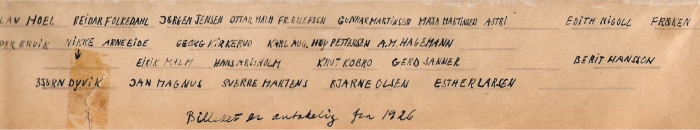 LAV HOEL REIDAR FOLKEDAHL JØRGEN JENSEN OTTAR MALM FR. OLEFSEN GUNNAR MARTINSEN MAJA MARTINSEN ASTRI EDITH NIGOLL FRØKEN
DER ERVIK NIKKE ARNE EIDE GEORG KIRKERUD KARL AUG. HØY PETTERSEN A.M. HAGEMANN
EIRIK MALM HANS ARISHOLM KNUT KOBRO GERD SANNER BERIT HANSSON
BJØRN DYVIK JAN MAGNUS SVERRE MARTENS BJARNE OLSEN ESTHER LARSEN
Billedet er antakelig fra 1926